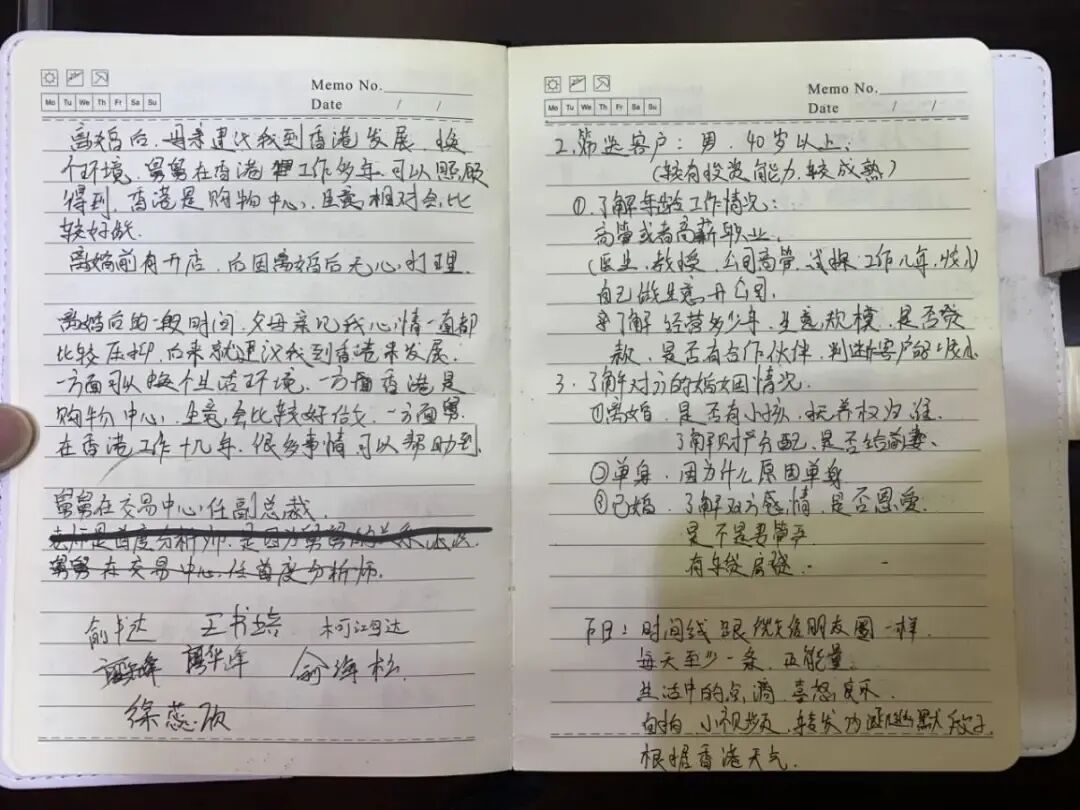 Memo No.
Mo Tu We Th Fr Sa Su
Date / /
离婚后,母亲建议我到香港发展.换
个环境.舅舅在香港工作多年.可以照顾
得到.香港是购物中心,生意相对会比
较好做.
离婚前有开店,后因离婚后无心打理.
离婚后的一段时间,父母亲见我心情一直都
比较压抑,后来就建议我到香港来发展.
一方面可以换个生活环境,一方面香港是
购物中心,生意会比较好做,一方面舅
在香港工作十几年,很多事情可以帮助到.
舅舅在交易中心任副总裁.
是首度分析师.是因为舅舅的关系
舅舅在交易中心任首度分析师.
俞 王书培
华峰 俞海松
徐蕊
Memo No.
Mo Tu We Th Fr Sa Su
Date / /
2.筛选客户:男.40岁以上.
(较有投资能力.较成熟)
①.了解年龄工作情况:
高管或者高薪职业.
(医生,教授,公司高管, 工作几年,
自己做生意.开公司.
了解经营多少年,生意规模,是否贷
款,是否有合作伙伴.判断客户的
3.了解对方的婚姻情况.
①离婚,是否有小孩,抚养权归谁.
了解财产分配,是否给前妻.
②单身,因为什么原因单身
③已婚,了解双方感情,是否恩爱.
是不是妻管严
有车贷房贷.
节日:时间线跟 朋友圈一样.
每天至少一条,正能量.
生活中的点滴,喜怒哀乐.
自拍,小视频,转发 幽默段子.
根据香港天气.